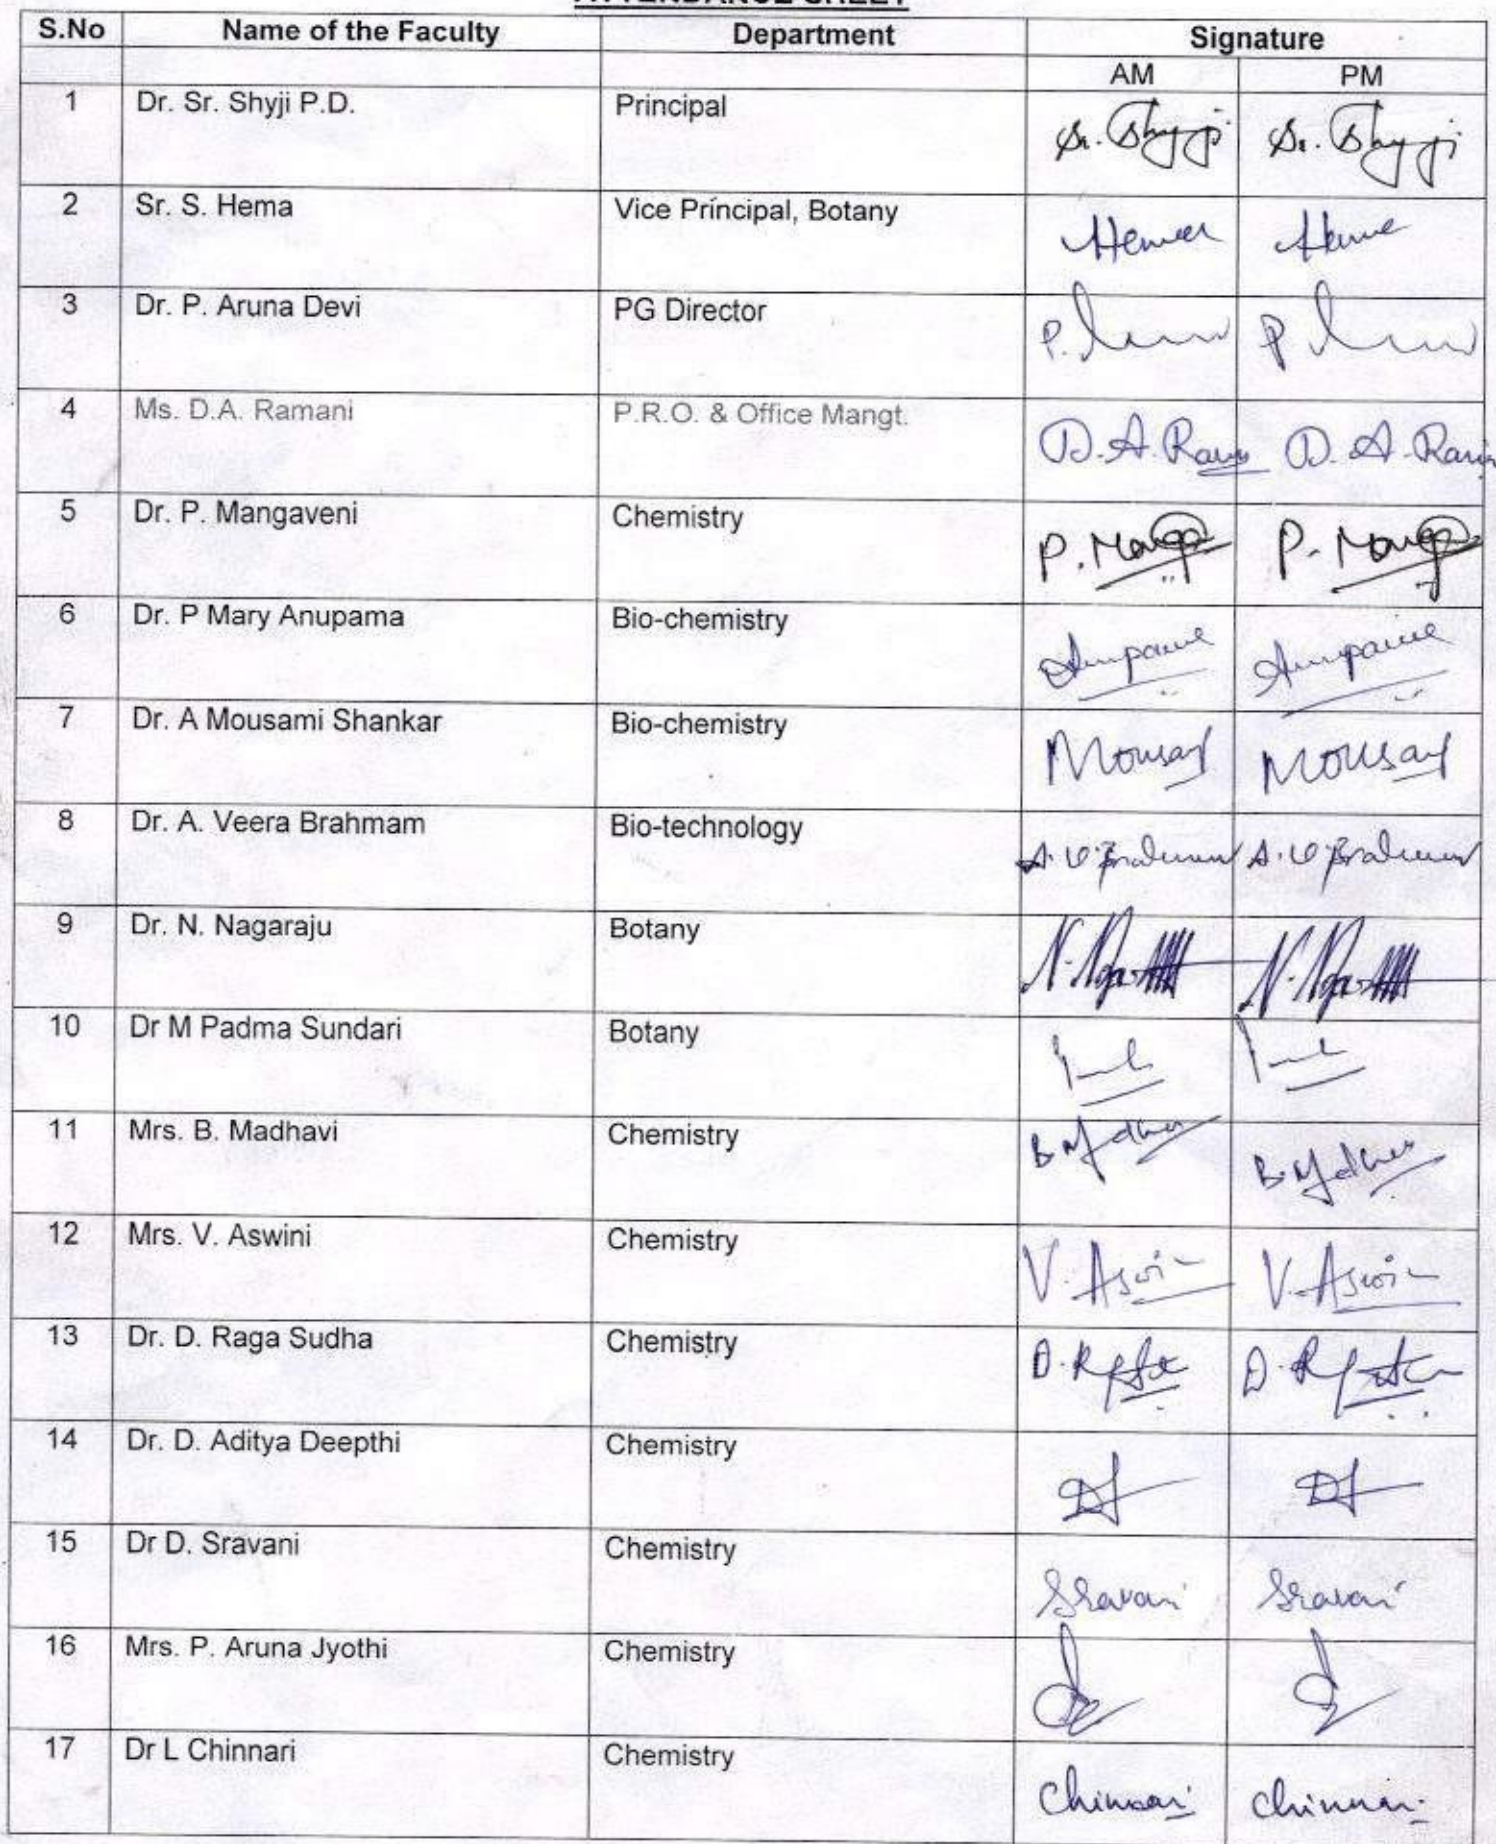 ATTENDANCE SHEET
S.No Name of the Faculty Department Signature
AM PM
1 Dr. Sr. Shyji P.D. Principal Sr. Shyji Sr. Shyji
2 Sr. S. Hema Vice Principal, Botany Hema Hema
3 Dr. P. Aruna Devi PG Director
4 Ms. D.A. Ramani P.R.O. & Office Mangt. D.A. Ram D.A. Ram
5 Dr. P. Mangaveni Chemistry P. Manga P. Manga
6 Dr. P Mary Anupama Bio-chemistry Anupama Anupama
7 Dr. A Mousami Shankar Bio-chemistry Mousa Mousa
8 Dr. A. Veera Brahmam Bio-technology A.V Brahmam A.V Brahmam
9 Dr. N. Nagaraju Botany
10 Dr M Padma Sundari Botany
11 Mrs. B. Madhavi Chemistry
12 Mrs. V. Aswini Chemistry V. Aswin V. Aswin
13 Dr. D. Raga Sudha Chemistry
14 Dr. D. Aditya Deepthi Chemistry
15 Dr D. Sravani Chemistry Sravani Sravani
16 Mrs. P. Aruna Jyothi Chemistry
17 Dr L Chinnari Chemistry Chinnari Chinnari